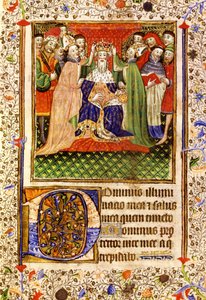 Dominus illumi
natio mea et salus
mea quem timebo
Dominus pro
tector vite mee a
trepidabo